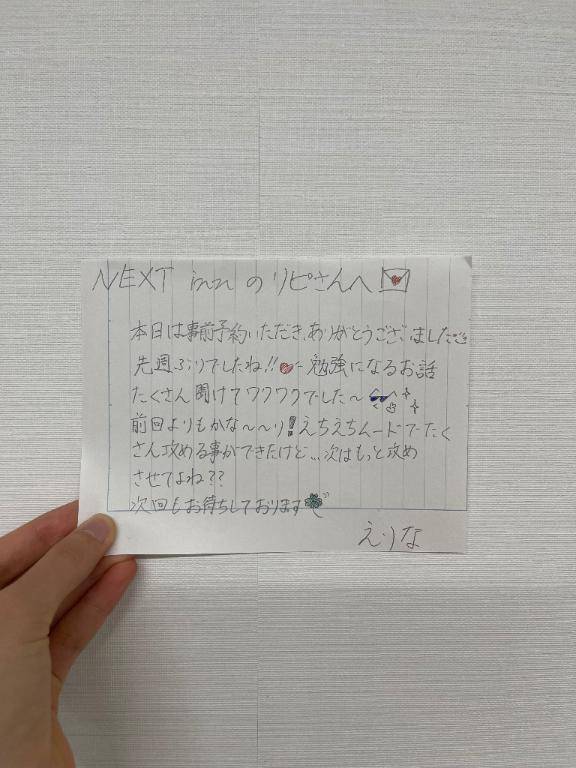 NEXT innのリピさんへ
本日は事前予約いただき、ありがとうございました
先週ぶりでしたね!! 勉強になるお話
たくさん聞けてワクワクでした〜
前回よりもかな〜〜り!えちえちムードでたく
さん攻める事ができたけど...次はもっと攻め
させてよね??
次回もお待ちしております
えりな